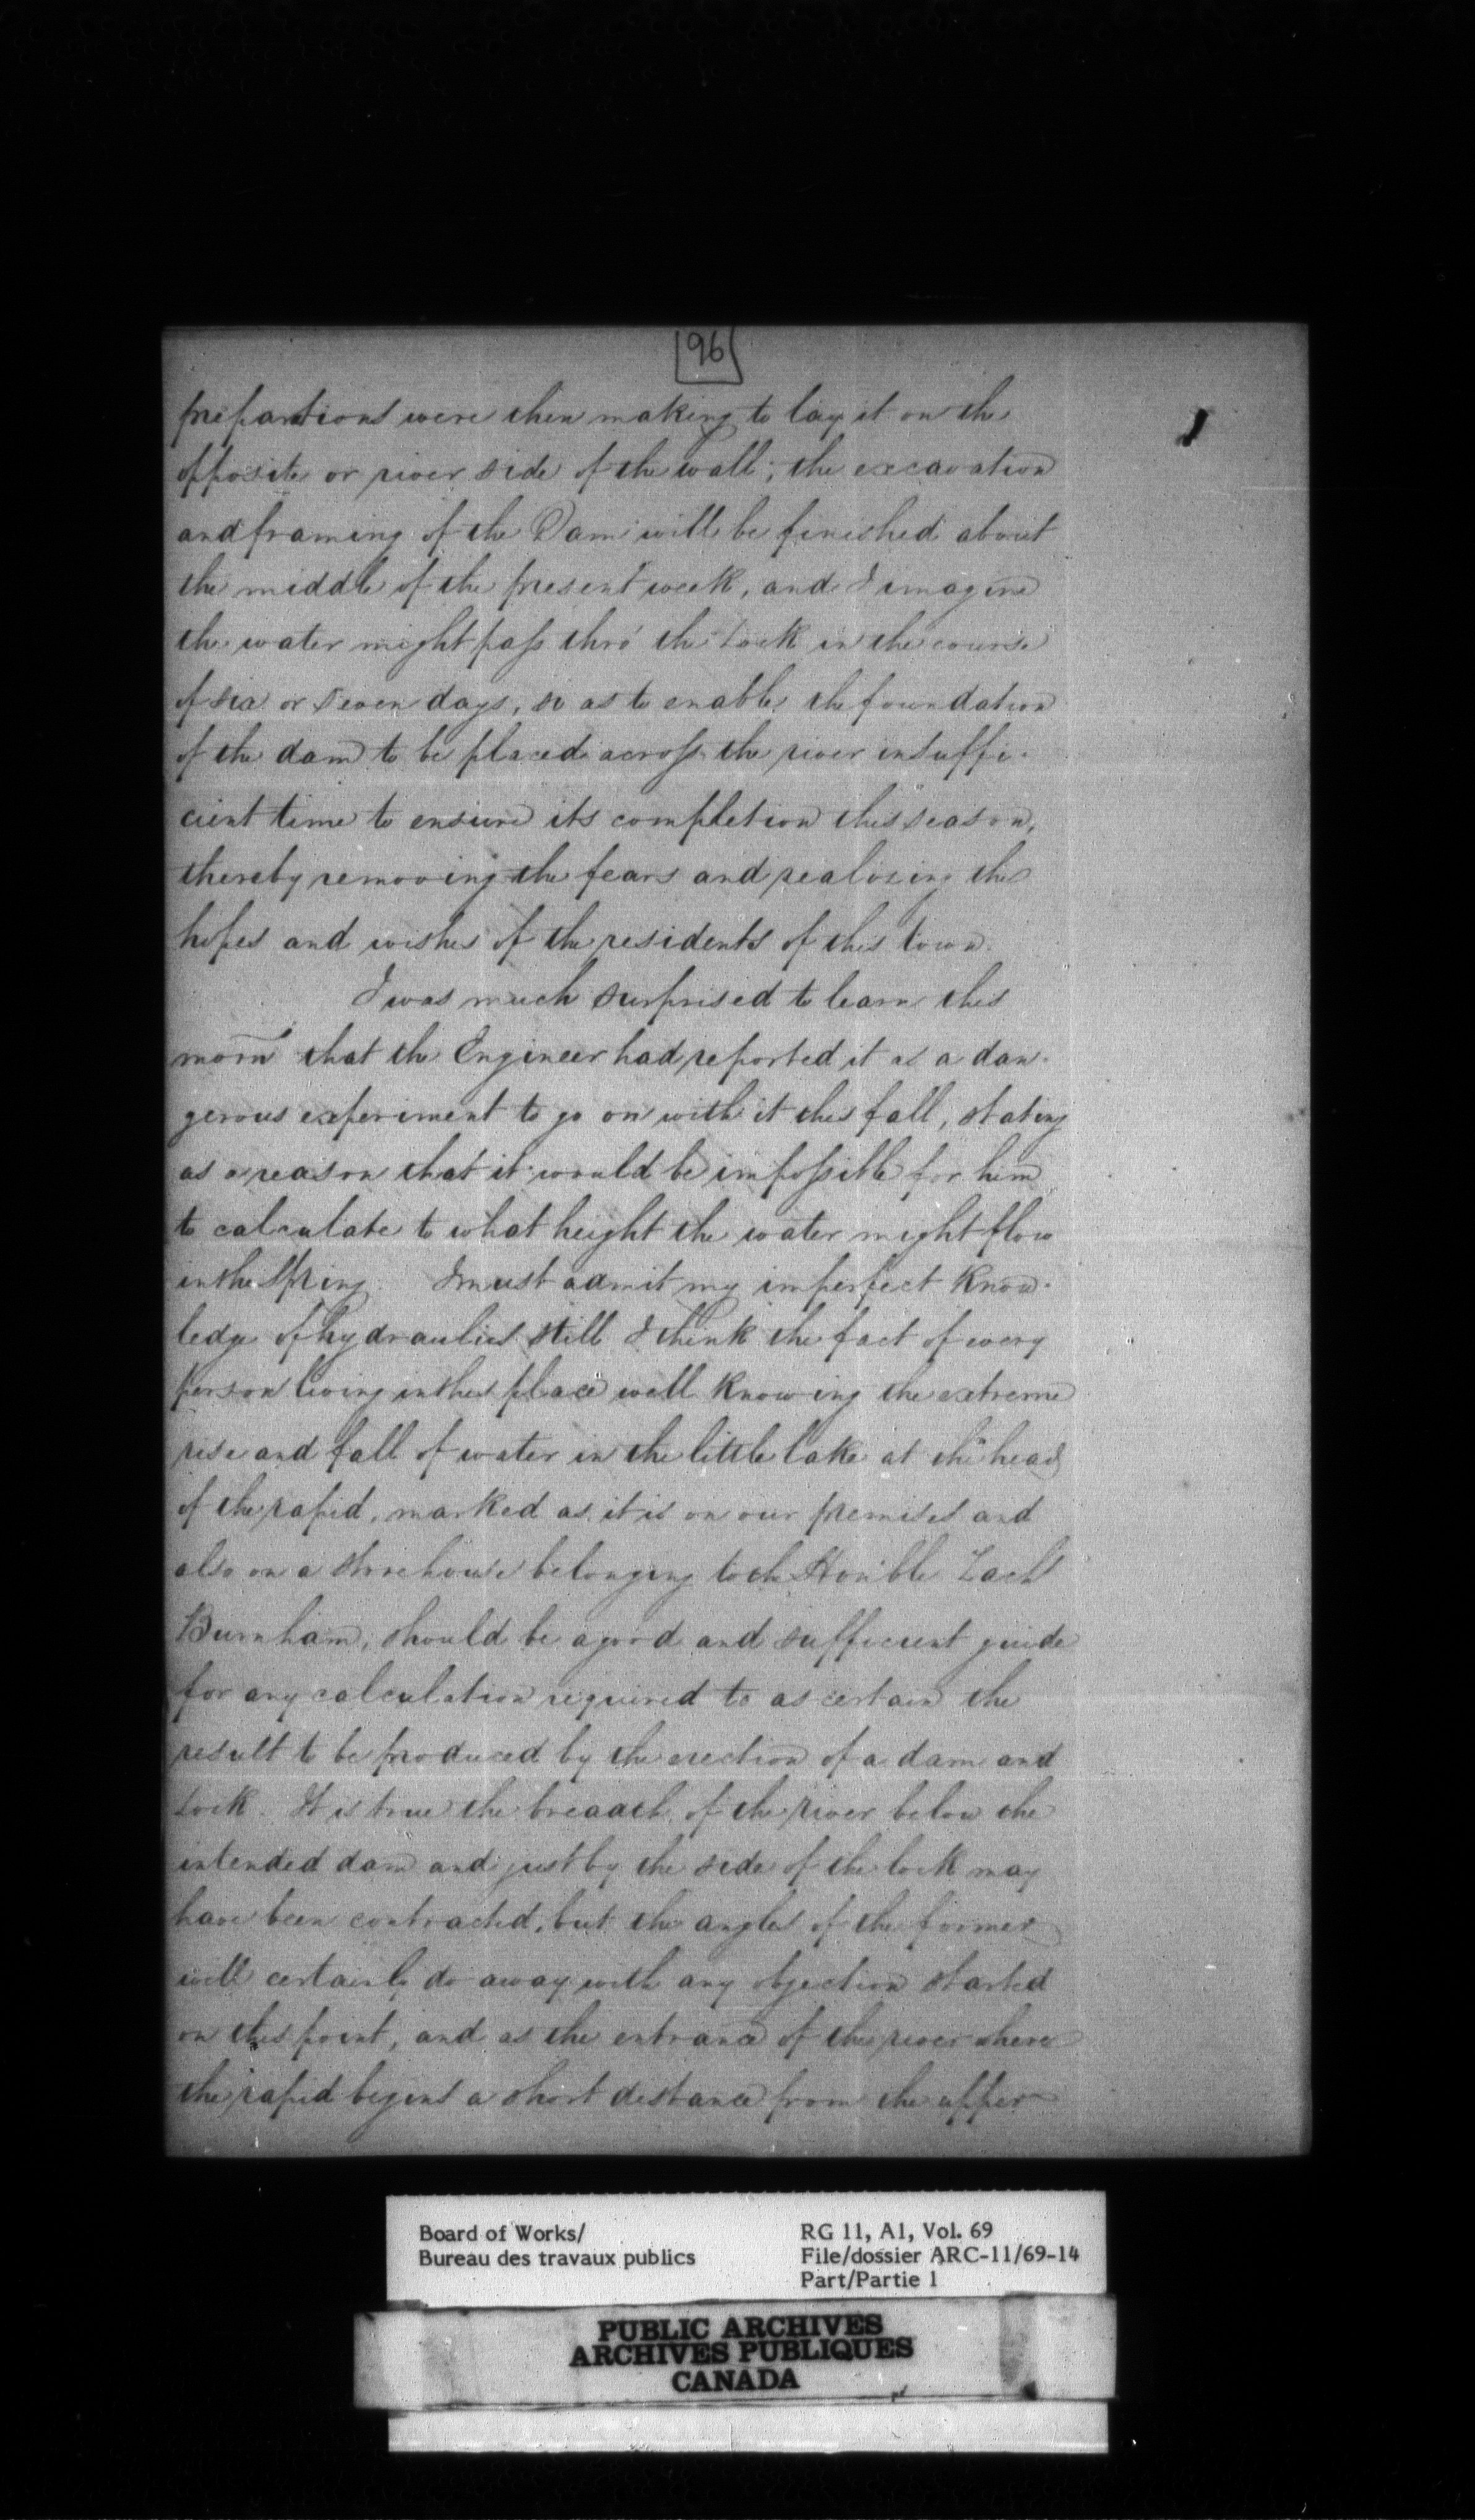 96
preparations were then making to lay it on the
opposite or river side of the wall; the excavation
and framing of the Dam will be finished about
the middle of the present week, and I imagine
the water might pass thro' the Lock in the course
of six or seven days, so as to enable the foundation
of the dam to be placed across the river in suffi-
cient time to ensure its completion this season,
thereby removing the fears and realizing the
hopes and wishes of the residents of this town.
I was much surprised to learn this
morn̄ that the Engineer had reported it as a dan-
gerous experiment to go on with it this fall, stating
as a reason that it would be impossible for him
to calculate to what height the water might flow
in the Spring. I must admit my imperfect know-
ledge of hydraulics still I think the fact of every
person living in this place well knowing the extreme
rise and fall of water in the little lake at the head
of the rapid, marked as it is on our premises and
also on a storehouse belonging to the Honble Zachs
Burnham, should be a good and sufficient guide
for any calculation required to ascertain the
result to be produced by the erection of a dam and
Lock. It is true the breadth of the river below the
intended dam and just by the side of the lock may
have been contracted, but the angles of the former
will certainly do away with any objection started
on this point, and as the entrance of the river where
the rapid begins a short distance from the upper
Board of Works/
Bureau des travaux publics
RG 11, A1, Vol. 69
File/dossier ARC-11/69-14
Part/Partie 1
PUBLIC ARCHIVES
ARCHIVES PUBLIQUES
CANADA